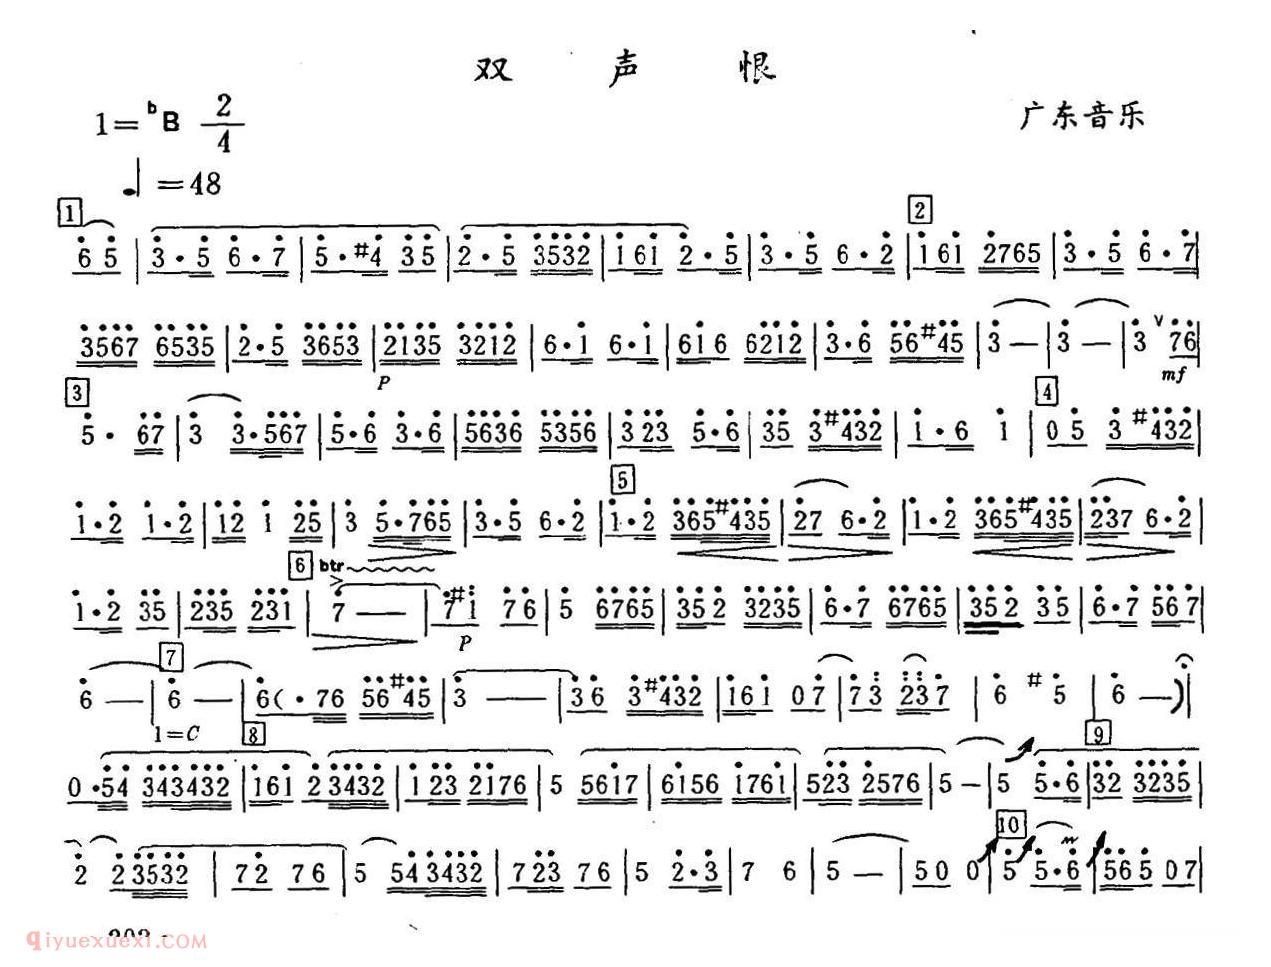 双 声 恨
1=ᵇB 2/4
广东音乐
♩=48
1 2
65 | 3·5 6·7 | 5·#4 35 | 2·5 3532 | 161 2·5 | 3·5 6·2 | 161 2765 | 3·5 6·7 |
3567 6535 | 2·5 3653 | 2135 3212 | 6·1 6·1 | 616 6212 | 3·6 56#45 | 3— | 3— | 3 ∨ 76 |
P mf
3 4
5· 67 | 3 3·567 | 5·6 3·6 | 5636 5356 | 323 5·6 | 35 3#432 | 1·6 1 | 05 3#432 |
5
1·2 1·2 | 12 1 25 | 3 5·765 | 3·5 6·2 | 1·2 365#435 | 27 6·2 | 1·2 365#435 | 237 6·2 |
6 btr
1·2 35 | 235 231 | 7 — | 7#1 76 | 5 6765 | 352 3235 | 6·7 6765 | 352 35 | 6·7 567 |
P
7
6— | 6— | 6(·76 56#45 | 3 — | 36 3#432 | 161 07 | 73 237 | 6 #5 | 6—) |
1=C 8 9
0·54 343432 | 161 23432 | 123 2176 | 5 5617 | 6156 1761 | 523 2576 | 5— | 5 5·6 | 32 3235 |
10
2 23532 | 72 76 | 5 543432 | 723 76 | 5 2·3 | 7 6 | 5— | 50 0 | 5 5·6 | 565 07 |
qiyuexuexi.COM